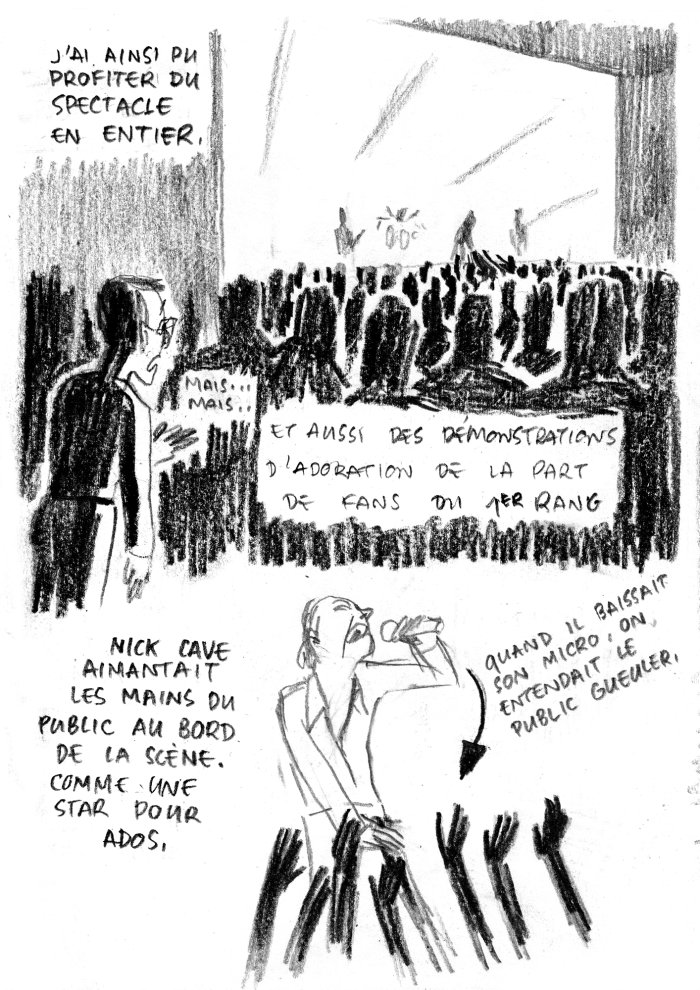 J'AI AINSI PU
PROFITER DU
SPECTACLE
EN ENTIER.
MAIS...
MAIS..
ET AUSSI DES DÉMONSTRATIONS
D'ADORATION DE LA PART
DE FANS DU 1ER RANG
QUAND IL BAISSAIT
SON MICRO, ON
ENTENDAIT LE
PUBLIC GUEULER.
NICK CAVE
AIMANTAIT
LES MAINS DU
PUBLIC AU BORD
DE LA SCÈNE.
COMME UNE
STAR POUR
ADOS.